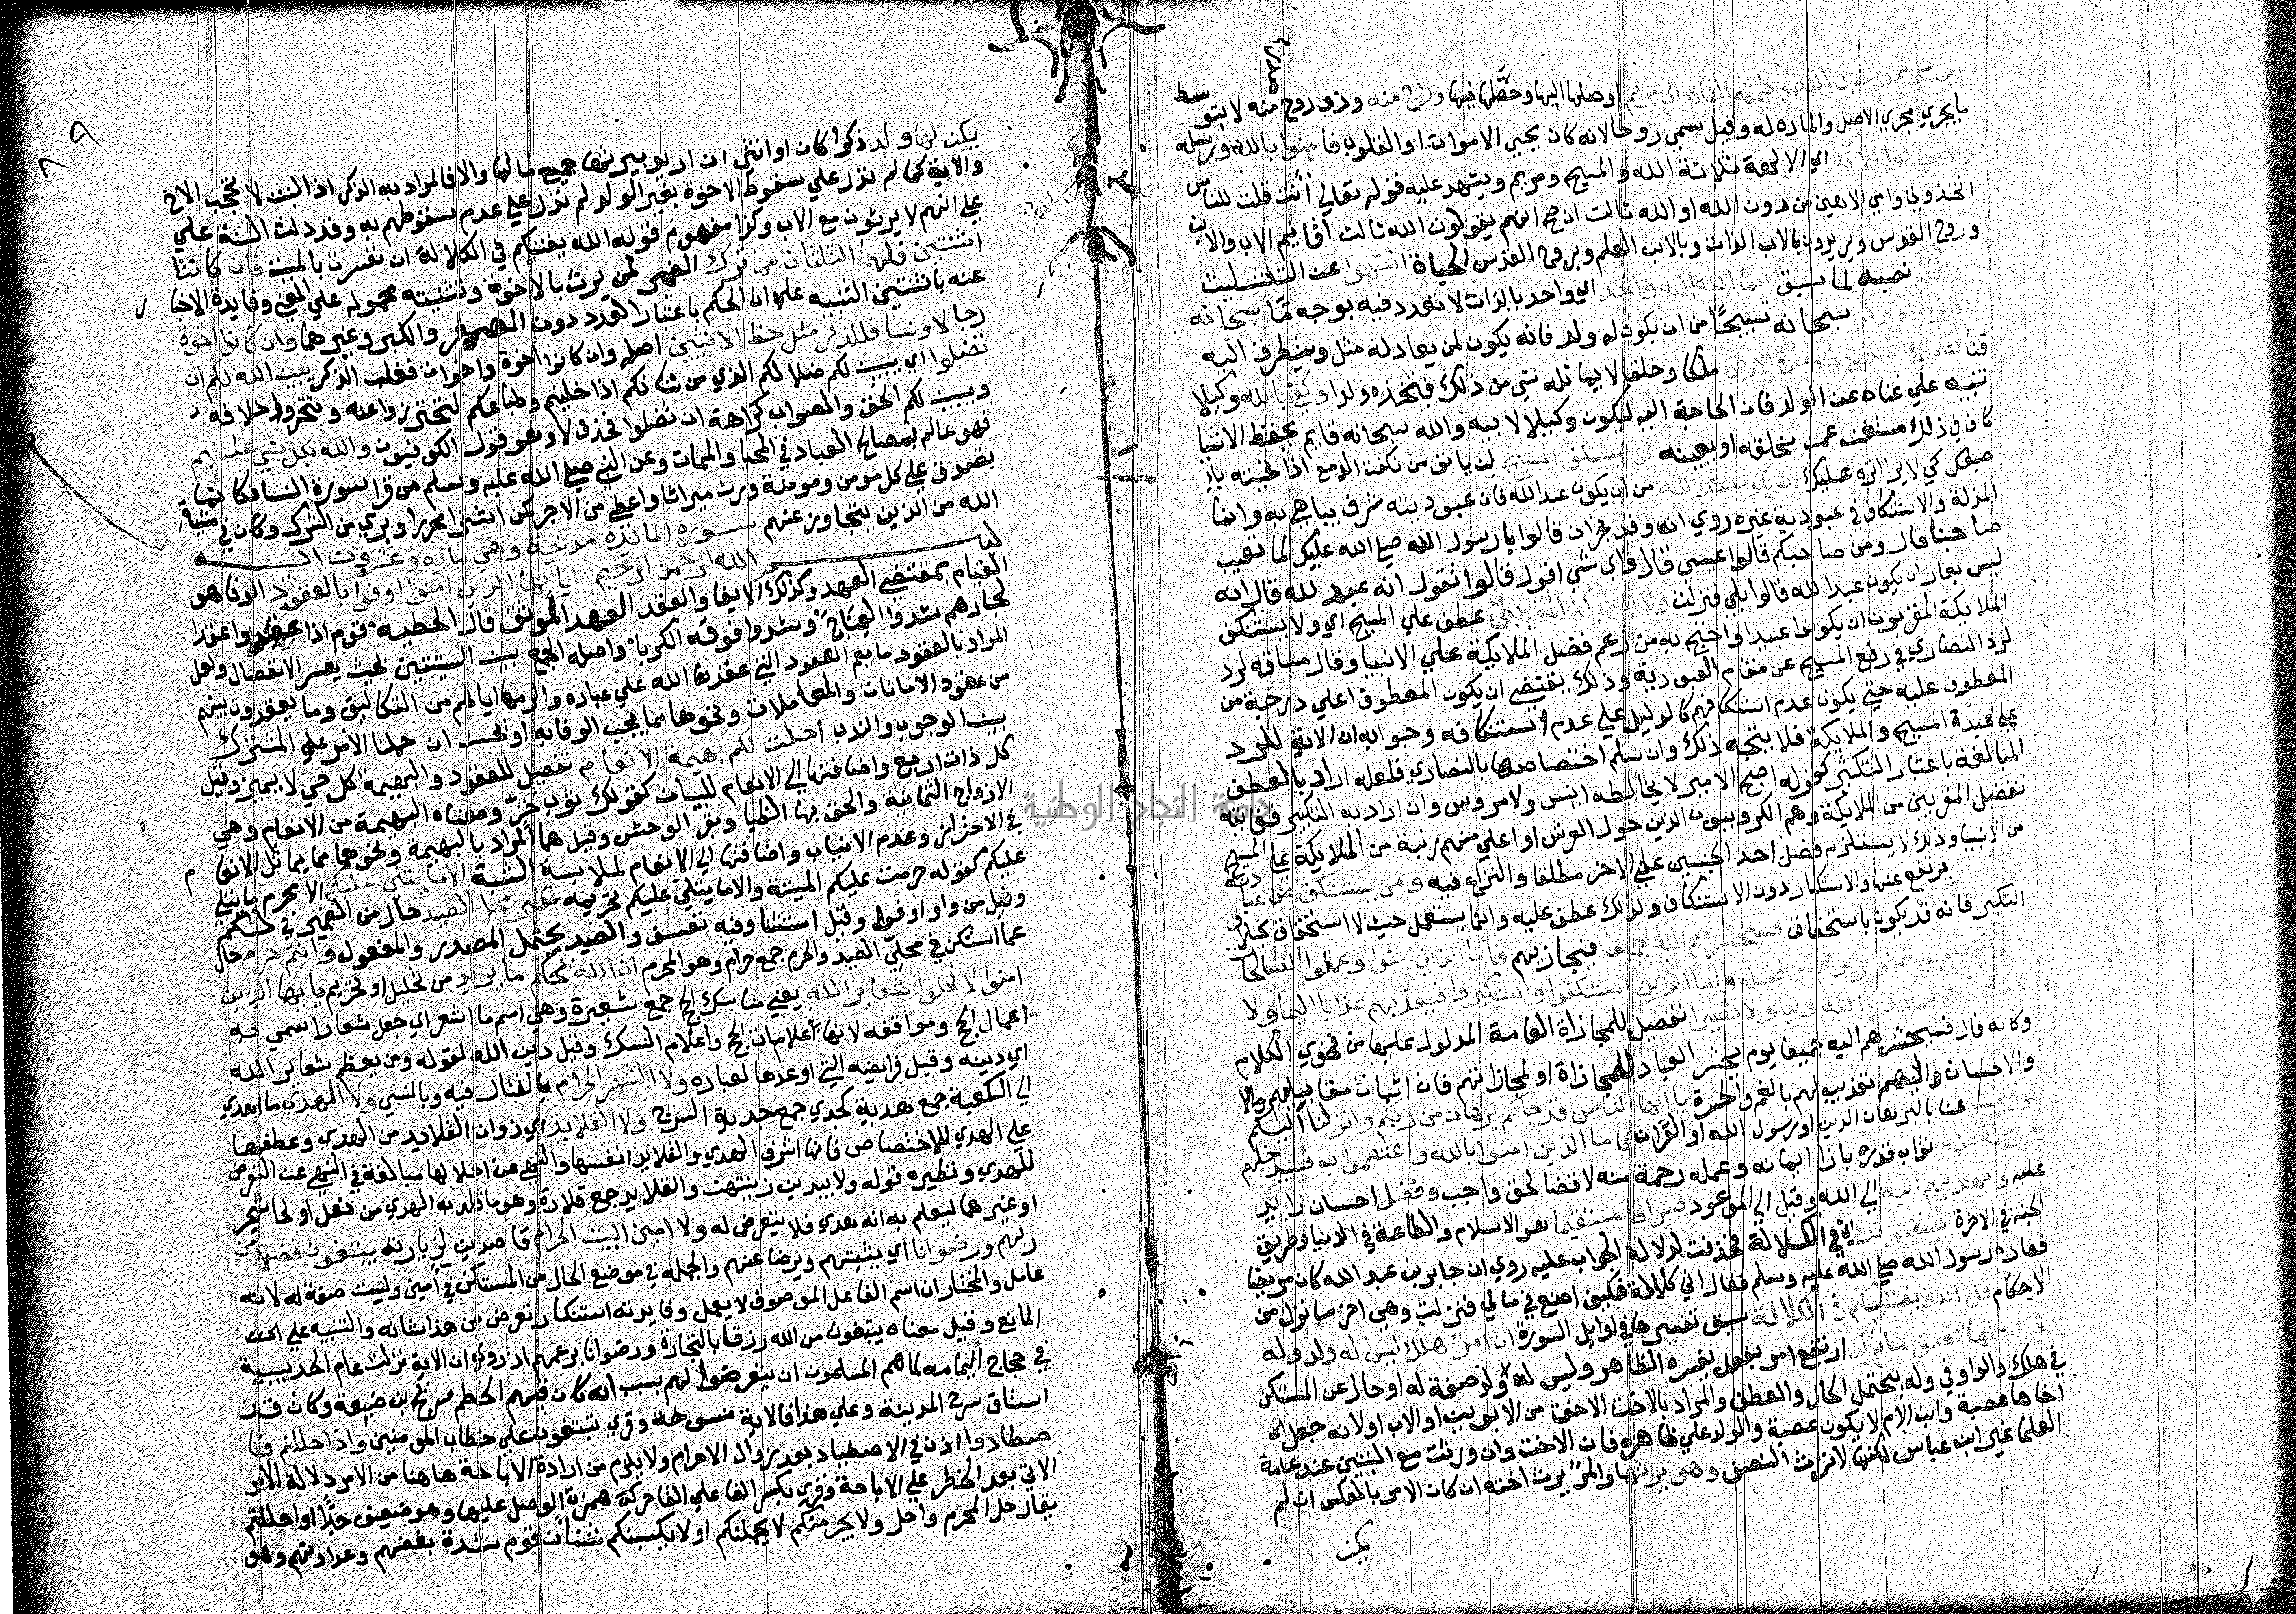 ابن مريم رسول الله وكلمته القاها الي مريم اوصلها اليها وحصَّلها فيها وروح منه وذو روح منه لا بتوسط
ما يجري مجري الاصل والماده له وقيل سمي روحا لانه كان يحيي الاموات او القلوب فامنوا بالله ورسله
ولا تقولوا ثلاثة اي الالهة ثلاثة الله والمسيح ومريم ويشهد عليه قوله تعالي أئنت قلت للناس
اتخذوني وامي الاهين من دون الله او الله ثالث ان صح انهم يقولون الله ثالث اقانيم الاب والابن
وروح القدس ويريدون بالاب الذات وبالابن العلم وبروح القدس الحياة انتهوا عن التثليث
خيرا لكم نصبه لما سبق انما الله اله واحد اي واحد بالذات لا تعدد فيه بوجه ما سبحانه
ان يكون له ولد سبحانه تسبيحًا من ان يكون له ولد فانه يكون لمن يعادله مثل ويتطرق اليه
فنا له ما في السموات وما في الارض ملكا وخلقا لا يماثله شي من ذلك فيتخذه ولدا وكفي بالله وكيلا
تنبيه علي غناه عن الولد فان الحاجة اليه ليكون وكيلا لابيه والله سبحانه قايم بحفظ الاشيا
كاف في ذلك مستغن عمن يخلفه او يعينه لن يستنكف المسيح لن يانف من نكفت الدمع اذا نحيته باصبعك
كي لا يرا اثره عليك ان يكون عبدا لله من ان يكون عبد الله فان عبوديته شرف يباهي به وانما
المذلة والاستنكاف في عبودية غيره روي انه وفد نجران قالوا يا رسول الله صلي الله عليك لما تعيب
صاحبنا قال ومن صاحبكم قالوا عيسي قال واي شي اقول قالوا تقول انه عبد لله قال انه
ليس بعار ان يكون عبدا لله قالوا بلي فنزلت ولا الملايكة المقربون عطف علي المسيح اي ولا يستنكف
الملايكة المقربون ان يكونوا عبيدا واحتج به من زعم فضل الملايكة علي الانبيا وقال مساقه لرد
لرد النصاري في رفع المسيح عن مقام العبودية وذلك يقتضي ان يكون المعطوف اعلي درجة من
المعطوف عليه حتي يكون عدم استنكافهم كالدليل علي عدم استنكافه وجوابه ان الاية للرد
علي عبدة المسيح والملايكة فلا يتجه ذلك وان سلم اختصاصها بالنصاري فلعله اراد بالعطف
المبالغة باعتبار التكثير كقوله اصبح الامير لا يخالطه رييس ولا مروس وان اراد به التكبير فغايته
تفضيل المقربين من الملايكة وهم الكروبيون الذين حول العرش او اعلي منهم رتبة من الملايكة علي المسيح
من الانبيا وذلك لا يستلزم فضل احد الجنسين علي الاخر مطلقا والنزاع فيه ومن يستنكف عن عبادته
ويستكبر يرتفع عنها والاستكبار دون الاستنكاف ولذلك عطف عليه وانما يستعمل حيث لا استحقاق بخلاف
التكبر فانه قد يكون باستحقاق فسيحشرهم اليه جميعا فيجازيهم فاما الذين امنوا وعملوا الصالحات
فيوفيهم اجورهم ويزيدهم من فضله واما الذين استنكفوا واستكبروا فيعذبهم عذابا اليما ولا
يجدون لهم من دون الله وليا ولا نصيرا تفصيل للمجازاة العامة المدلول عليها من فحوي الكلام
وكانه قال فسيحشرهم اليه جميعا يوم يحشر العباد للمجازاة او لمجازاتهم فان اثبات مقابيلهم ولا
والاحسان والبهم تعذيب لهم بالغم والحسرة يا ايها الناس قد جاكم برهان من ربكم وانزلنا اليكم
نورا مبينا عنا بالبرهان الدين او رسول الله او القران فاما الذين امنوا بالله واعتصموا به فسيدخلهم
في رحمة منه ثواب قدره بازا ايمانه وعمله رحمة منه لا قضا لحق واجب وفضل احسان زايد
عليه ويهديهم اليه الي الله وقيل الي الموعود صراطا مستقيما هو الاسلام والطاعة في الدنيا وطريق
الجنة في الاخرة يستفتونك اي في الكلالة فحذفت لدلالة الجواب عليه روي ان جابر بن عبد الله كان مريضا
فعاده رسول الله صلي الله عليه وسلم فقال اني كلالة فكيف اصنع في مالي فنزلت وهي اخر ما نزل من
الاحكام قل الله يفتيكم في الكلالة سبق تفسيرها في اوايل السورة ان امرؤ هلك ليس له ولد وله
اخت فلها نصف ما ترك ارتفع امر بفعل يفسره الظاهر وليس له ولد صفة له او حال عن المستكن
في هلك والواو في وله يحتمل الحال والعطف والمراد بالاخت الاخت من الابوين او الاب اولانه جعل
اخاها عصبة وابن الام لا يكون عصبة والولد علي ظاهره فان الاخت وان ورثت مع البنت عند عامة
العلما غير ابن عباس لكنها لا ترث النصف وهو يرثها والمرؤ يرث اخته ان كان الامر بالعكس ان لم
يكن
يكن لها ولد ذكرا كان او انثي ان اريد بيرثها جميع مالها والا فالمراد به الذكر اذ البنت لا تحجب الاخ
والاية كما لم تدل علي سقوط الاخوة بغير الولد لم تدل علي عدم سقوطهم به وقد دلت السنة علي
علي انهم لا يرثون مع الاب وكذا مفهوم قوله الله يفتيكم في الكلالة ان فسرت بالميت فان كانتا
اثنتين فلهما الثلثان مما ترك الضمير لمن يرث بالاخوة وتثنيته محمولة علي المعني وفايدة الاخبار
عنه باثنتين التنبيه علي ان الحكم باعتبار العدد دون الصغر والكبر وغيرهما وان كانوا اخوة
رجالا ونسا فللذكر مثل حظ الانثيين اصله وان كانوا اخوة واخوات فغلب الذكر يبين الله لكم ان
تضلوا اي يبين لكم ضلالكم الذي من شانكم اذا خليتم وطباعكم لتحترزوا عنه وتتحروا خلافه
ويبين لكم الحق والصواب كراهة ان تضلوا فحذف لا وهو قول الكوفيون والله بكل شي عليم
فهو عالم بمصالح العباد في المحيا والممات وعن النبي صلي الله عليه وسلم من قرا سورة النسا فكانما
تصدق علي كل مومن ومومنة ورث ميراثا واعطي من الاجر كمن اشتري محررا وبري من الشرك وكان في مشية
الله من الذين يتجاوز عنهم سورة المايدة مدنية وهي ماية وعشرون اية
بسم الله الرحمن الرحيم يا ايها الذين امنوا اوفوا بالعقود الوفا هو
القيام بمقتضي العهد وكذلك الايفا والعقد العهد الموثق قال الحطية قوم اذا عقدوا عقدا
لجارهم شدوا العناج وشدوا فوقه الكربا واصله الجمع بين الشيئين بحيث يعسر الانفصال ولعل
المراد بالعقود ما يعم العقود التي عقدها الله علي عباده والزمها اياهم من التكاليف وما يعقدون بينهم
من عقود الامانات والمعاملات ونحوها مما يجب الوفا به او يحسن ان حملنا الامر علي المشترك
بين الوجوب والندب احلت لكم بهيمة الانعام تفصيل للعقود والبهيمة كل حي لا يميز وقيل
كل ذات اربع واضافتها الي الانعام للبيان كقولك ثوب خزّ ومعناه البهيمة من الانعام وهي
الازواج الثمانية والحق بها الظبا وبقر الوحش وقيل هما المراد بالبهيمة ونحوهما مما يماثل الانعام
في الاجترار وعدم الانياب واضافتها الي الانعام لملابسة الشبه الا ما يتلي عليكم الا محرم ما يتلي
عليكم كقوله حرمت عليكم الميتة والا ما يتلي عليكم تحريمه غير محلي الصيد حال من الضمير في لكم
وقيل من واو اوفوا وقيل استثنا وفيه تعسف والصيد يحتمل المصدر والمفعول وانتم حرم حال
عما استكن في محليّ الصيد والحرم جمع حرام وهو المحرم ان الله يحكم ما يريد من تحليل او تحريم يا ايها الذين
امنوا لا تحلوا شعاير الله يعني مناسك الحج جمع شعيرة وهي اسم ما اشعر اي جعل شعارا سمي به
اعمال الحج ومواقفه لانها علامات الحج واعلام النسك وقيل دين الله لقوله ومن يعظم شعاير الله
اي دينه وقيل فرايضه التي اوعدها لعباده ولا الشهر الحرام بالقتال فيه وبالنسي ولا الهدي ما اهدي
الي الكعبة جمع هدية كجدي جمع جدية السرج ولا القلايد اي ذوات القلايد من الهدي وعطفها
علي الهدي للاختصاص فانها اشرف الهدي والقلايد انفسها والنهي عن احلالها مبالغة في النهي عن التعرض
للهدي ونظيره قوله ولا يبدين زينتهن والقلايد جمع قلادة وهو ما قلد به الهدي من نعل او لحا شجر
او غيرهما ليعلم به انه هدي فلا يتعرض له ولا امين البيت الحرام قاصدين لزيارته يبتغون فضلا من
ربهم ورضوانا اي يثيبهم ويرضا عنهم والجملة في موضع الحال من المستكن في آمين وليست صفة له لانه
عامل والمختار ان اسم الفاعل الموصوف لا يعمل وفايدته استنكار تعرض من هذا شانه والتنبيه علي
المانع وقيل معناه يبتغون من الله رزقا بالتجارة ورضوانا بزعمهم اذ روي ان الاية نزلت عام الحديبية
في حجاج اليمامه لما هم المسلمون ان يتعرضوا لهم بسبب انه كان فيهم الحطم شريح بن ضبيعة وكان قد
استاق سرح المدينة وعلي هذا فالاية منسوخة وقري تبتغون علي خطاب المومنين واذا حللتم فا
صطادوا اذن في الاصطياد بعد زوال الاحرام ولا يلزم من ارادة الاباحة هاهنا من الامر دلالة الامر
الاتي بعد الحظر علي الاباحة وقري بكسر الفا علي القا حركة همزة الوصل عليها وهو ضعيف جدًّا واحللتم
يقال حل المحرم واحل ولا يجرمنكم لا يحملنكم او لا يكسبنكم شنآن قوم شدة بغضهم وعداوتهم وهو
دولة النجاد الوطنية